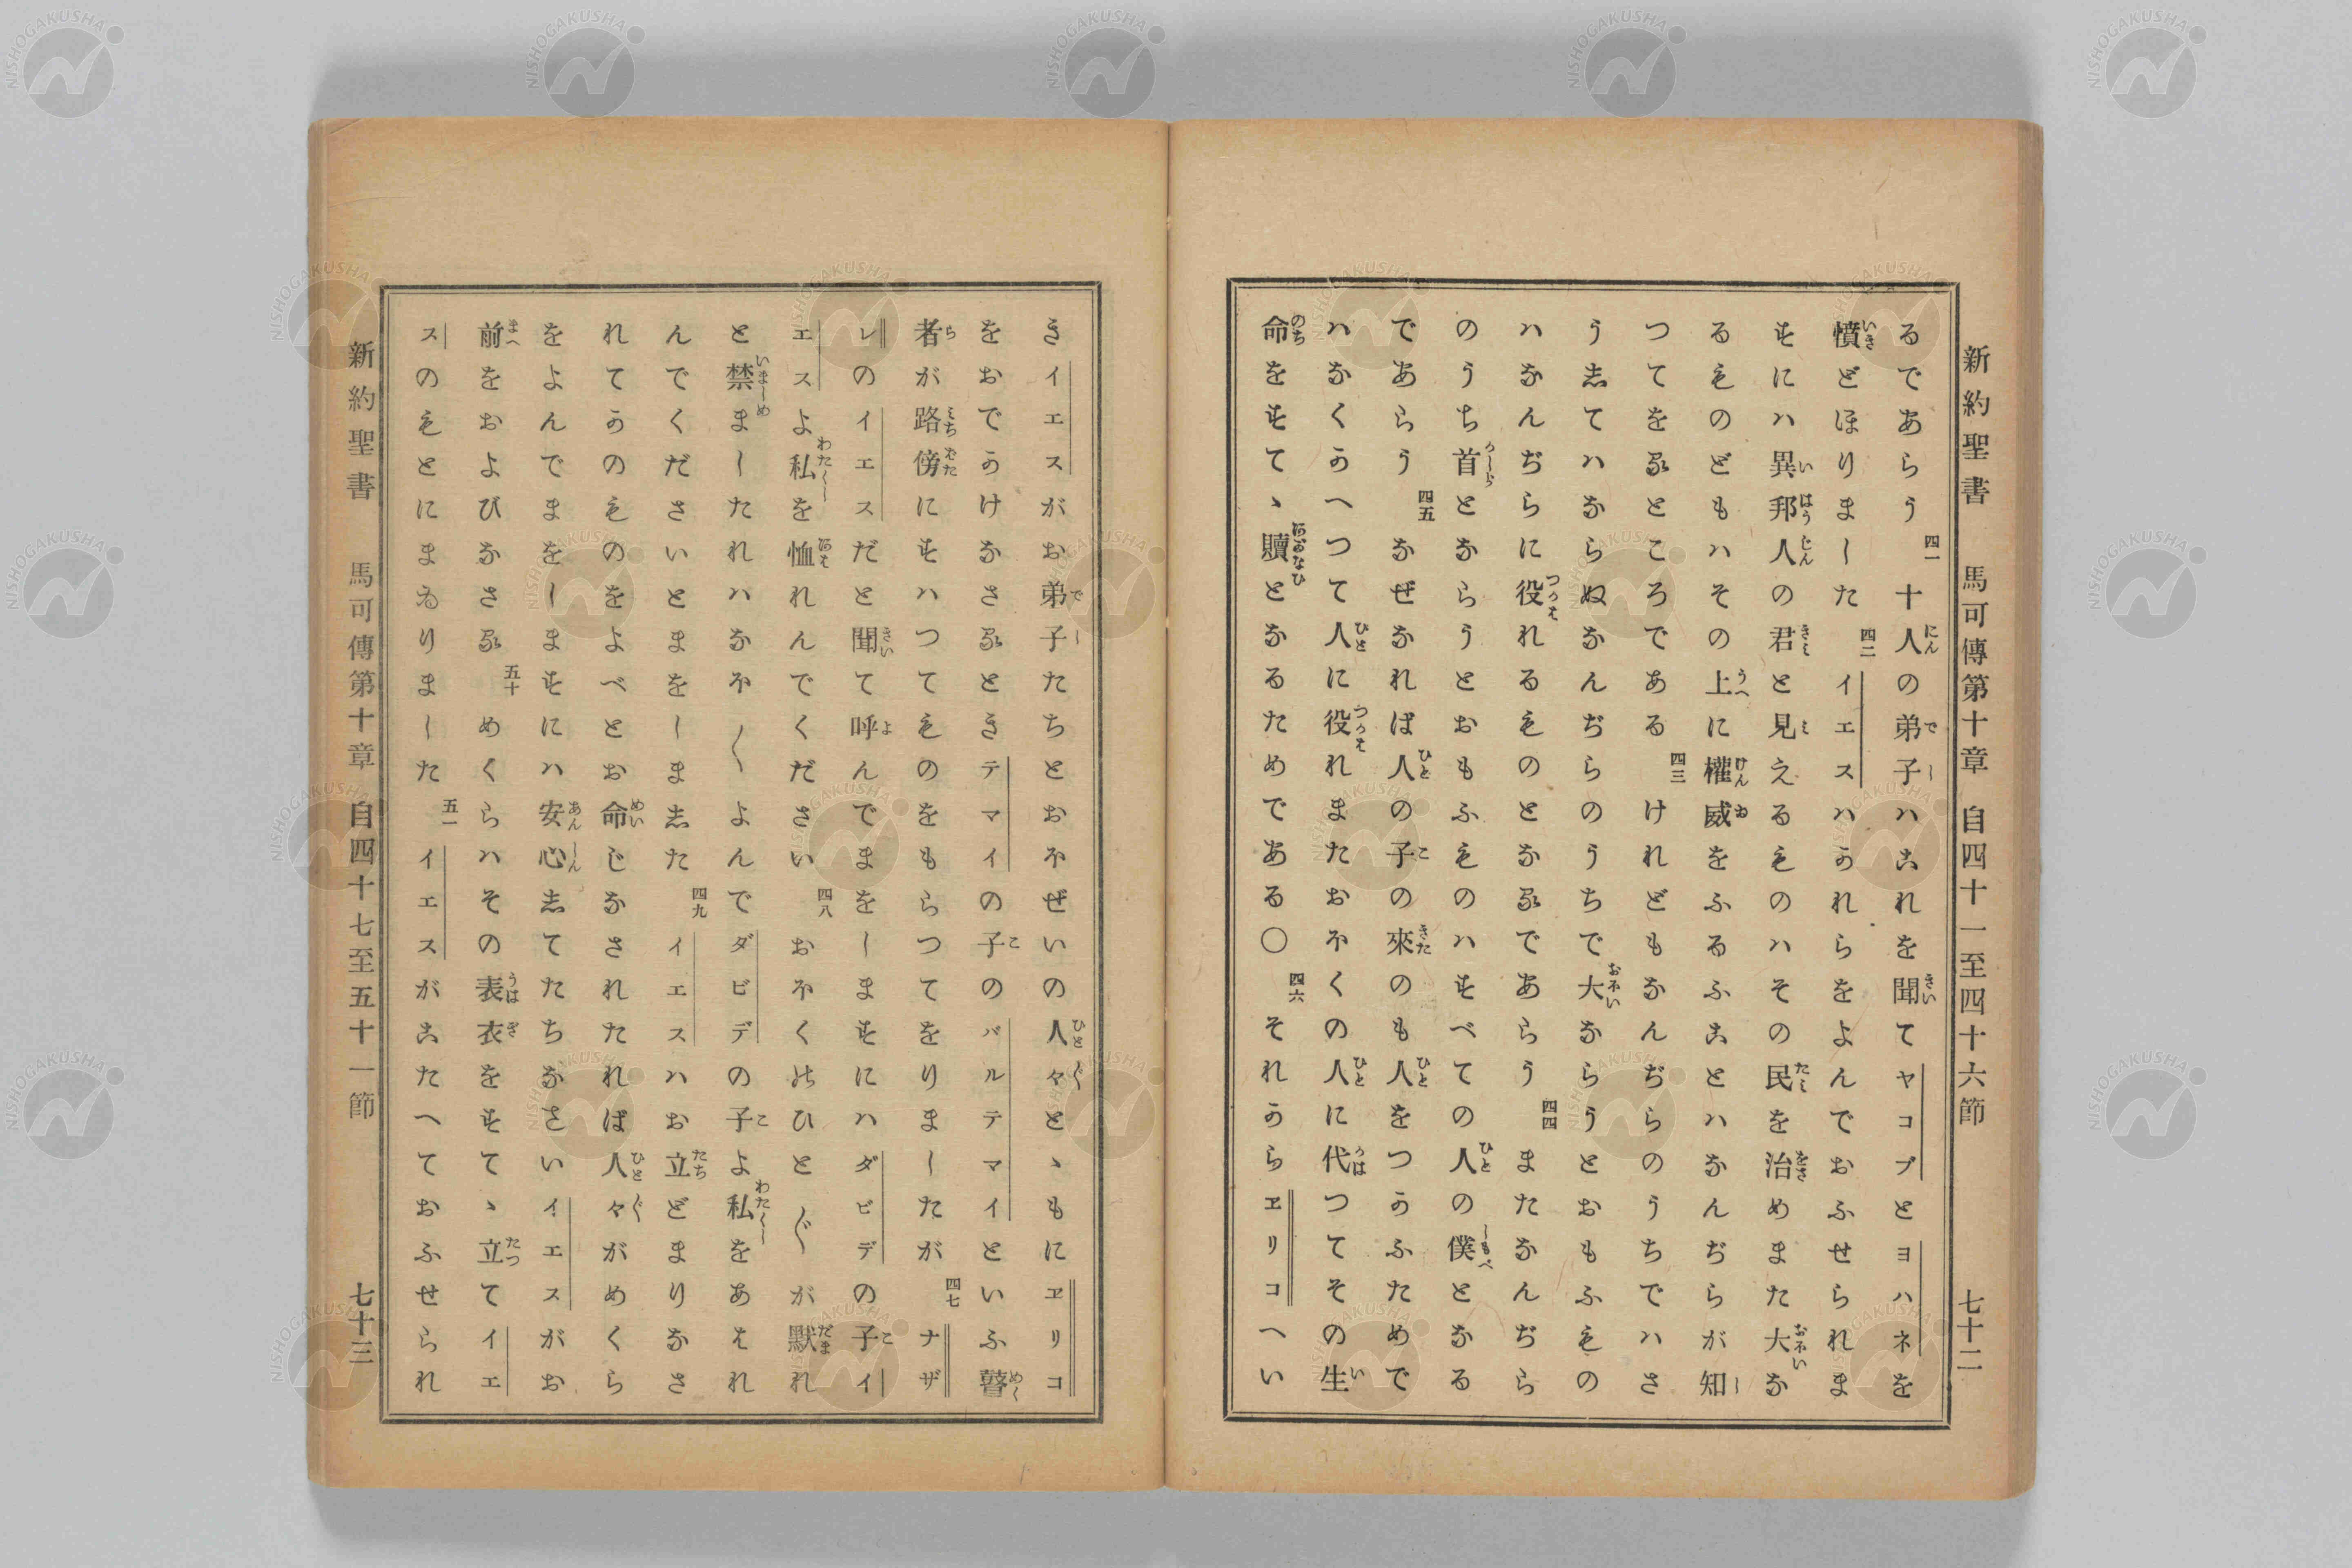 新約聖書 馬可傳第十章 自四十一至四十六節 七十二
るであらう 四一 十人の弟子ハこれを聞てヤコブとヨハネを
憤どほりました 四二 イエスハかれらをよんでおふせられま
すにハ異邦人の君と見えるものハその民を治めまた大な
るものどもハその上に權威をふるふことハなんぢらが知
つてをるところである 四三 けれどもなんぢらのうちでハさ
うしてハならぬなんぢらのうちで大ならうとおもふもの
ハなんぢらに役れるものとなるであらう 四四 またなんぢら
のうち首とならうとおもふものハすべての人の僕となる
であらう 四五 なぜなれば人の子の來のも人をつかふためで
ハなくかへつて人に役れまたおほくの人に代つてその生
命をすてゝ贖となるためである〇 四六 それからヱリコへい
きイエスがお弟子たちとおほぜいの人々とゝもにヱリコ
をおでかけなさるときテマイの子のバルテマイといふ瞽
者が路傍にすハつてものをもらつてをりましたが 四七 ナザ
レのイエスだと聞て呼んでまをしますにハダビデの子イ
エスよ私を恤れんでください 四八 おほくのひと〴〵が默れ
と禁ましたれハなほ〳〵よんでダビデの子よ私をあはれ
んでくださいとまをしました 四九 イエスハお立どまりなさ
れてかのものをよべとお命じなされたれば人々がめくら
をよんでまをしますにハ安心してたちなさいイエスがお
前をおよびなさる 五十 めくらハその表衣をすてゝ立てイエ
スのもとにまゐりました 五一 イエスがこたへておふせられ
新約聖書 馬可傳第十章 自四十七至五十一節 七十三
NISHOGAKUSHA